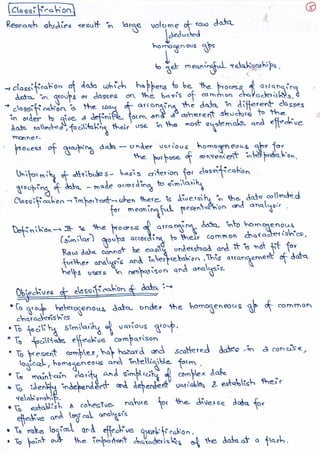 Classification
5
Research studies result in large volume of raw data
deducted
homogenous gps
to get meaningful relationships.
→ classification of data which happens to be the process of arranging
data in groups or classes on the basis of common characteristics, &
→ classification is the way of arranging the data in different classes
in order to give a definite form and a coherent structure to the
data collected, facilitating their use in the most systematic and effective
manner.
process of grouping data – under various homogeneous gps for
the purpose of convenient interpretation.
Uniformity of attributes – basis criterion for classification
grouping of data – made according to similarity
Classification → Important – when there is diversity in the data collected
for meaningful presentation and analysis.
Definition → It is the process of arranging data into homogenous
(similar) groups according to their common characteristics.
Raw data cannot be easily understood and it is not fit for
further analysis and interpretation. This arrangement of data
helps users in comparison and analysis.
Objectives of classification of data :→
• To group heterogenous data under the homogeneous gp of common
characteristics
• To facility similarity of various group.
• To facilitate effective comparison
• To present complex, haphazard and scattered dates in a concise,
logical, homogeneous and intelligible form.
• To maintain clarity and simplicity of complex data
• To identify independent and dependent variables & establish their
relationship.
• To establish a cohesive nature for the diverse data for
effective and logical analysis
• To make logical and effective quantification.
• To point out the important characteristics of the data at a flash.